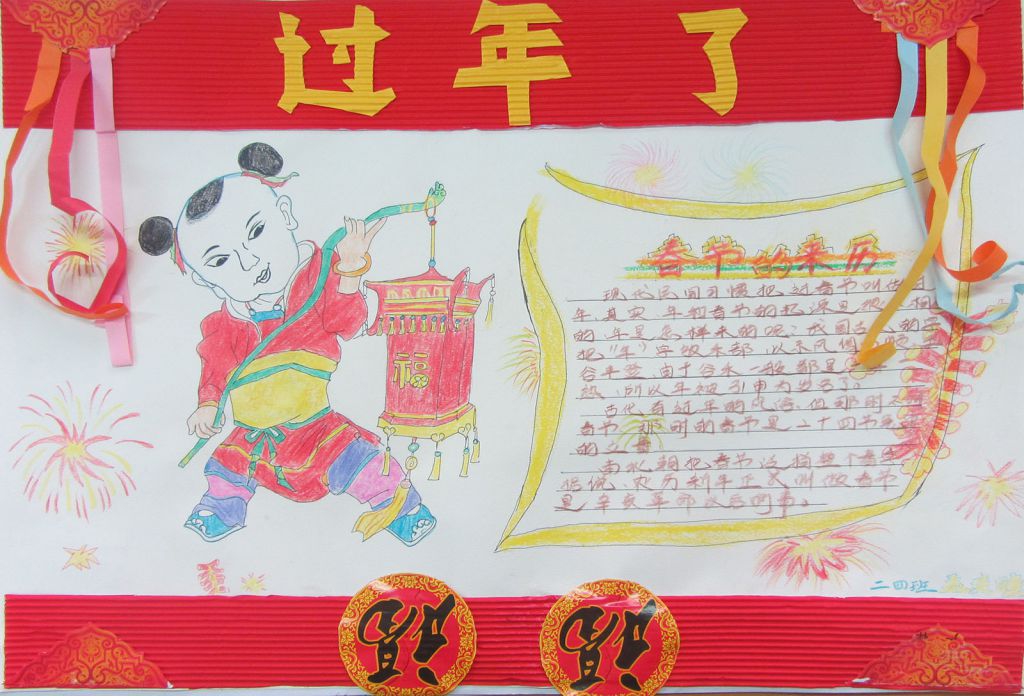 过年了
春节的来历
现代民间习惯把过春节叫做过
年,其实,年和春节的起源是很不相同
的,年是怎样来的呢?我国古人的字
把"年"字放禾部,以示风调雨顺,五
谷丰登,由于谷禾一般都是
熟,所以年被引申为岁名了。
古代有过年的风俗,但那时不叫
春节,那时的春节是二十四节气中
的立春
南北朝把春节泛指整个春季
据说,农历新年正式叫做春节
是辛亥革命以后的事。
福
二四班
福
福